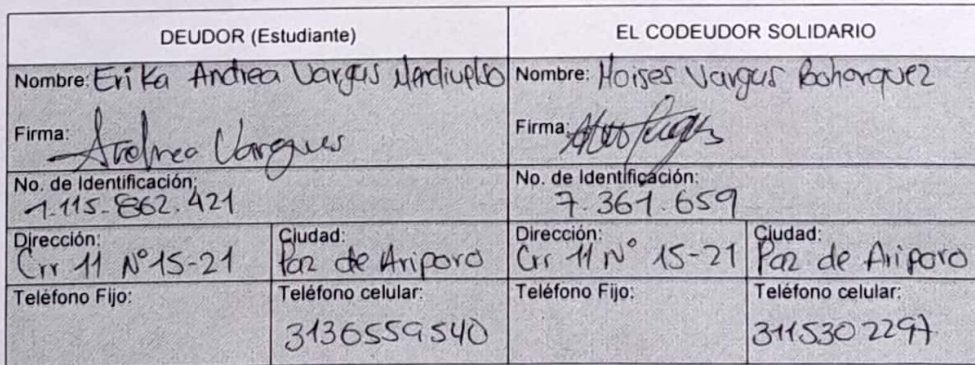 DEUDOR (Estudiante)
EL CODEUDOR SOLIDARIO
Nombre: Erika Andrea Vargas
Nombre: Moises Vargas Bohorquez
Firma: Andrea Vargas
Firma:
No. de Identificación:
1.115.862.421
No. de Identificación:
7.361.659
Dirección:
Crr 11 N° 15-21
Ciudad:
Paz de Ariporo
Dirección:
Crr 11 N° 15-21
Ciudad:
Paz de Ariporo
Teléfono Fijo:
Teléfono celular:
3136559540
Teléfono Fijo:
Teléfono celular:
3115302297